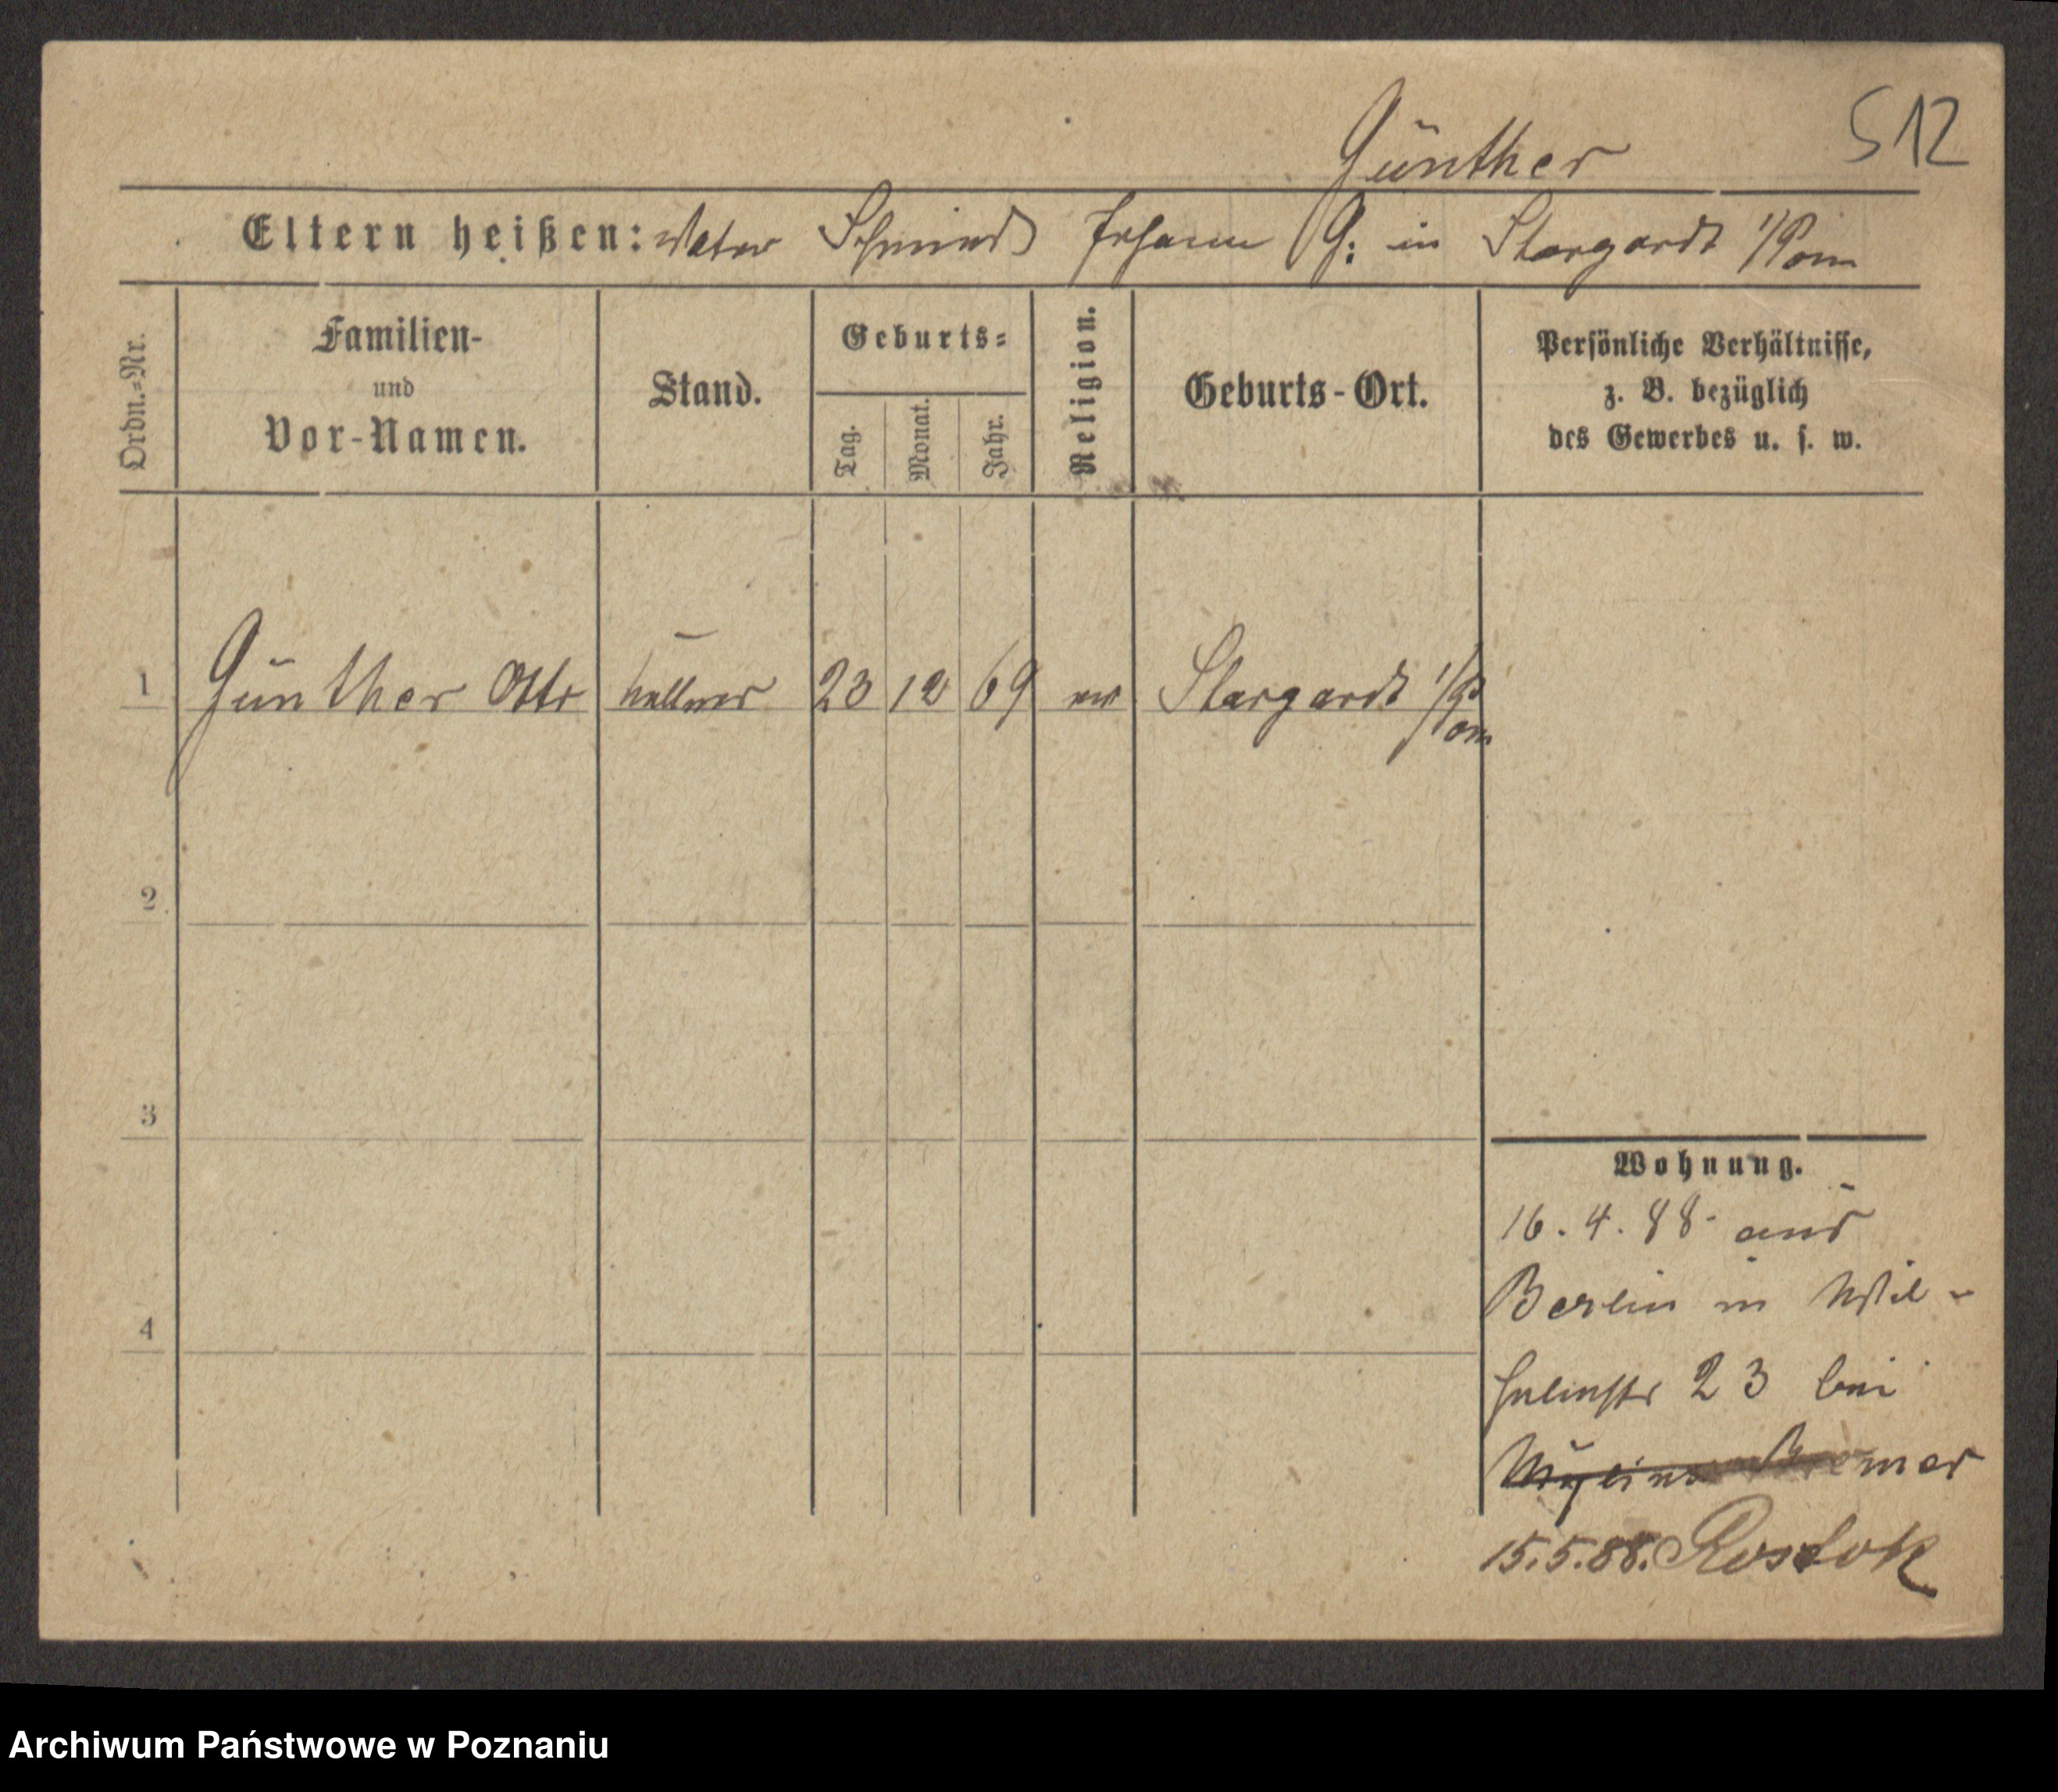 Günther
512
Eltern heißen: Vater Schmied Johann G. in Stargardt i/Pom
Ordn.-Nr.
Familien-
und
Vor-Namen.
Stand.
Geburts-
Tag.
Monat.
Jahr.
Religion.
Geburts-Ort.
Persönliche Verhältnisse,
z. B. bezüglich
des Gewerbes u. s. w.
1 Günther Otto Kellner 23 12 69 ev Stargardt i/Pom
2
3
4
Wohnung.
16.4.88. aus
Berlin in Wil-
helmstr 23 bei
15.5.88. Rostok
Archiwum Państwowe w Poznaniu